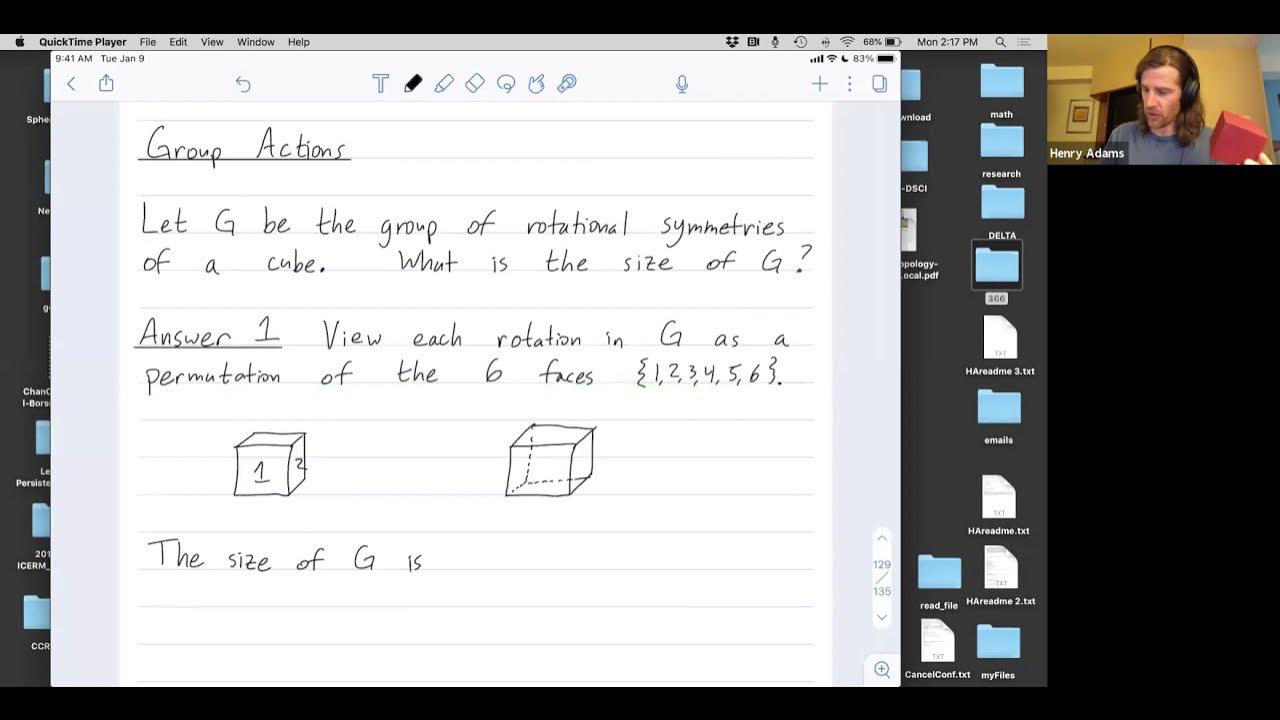 QuickTime Player File Edit View Window Help 68% Mon 2:17 PM
9:41 AM Tue Jan 9 83%
Group Actions
Let G be the group of rotational symmetries
of a cube. What is the size of G?
Answer 1 View each rotation in G as a
permutation of the 6 faces {1,2,3,4,5,6}.
1 2
The size of G is
129
135
Henry Adams
math
research
DELTA
366
HAreadme 3.txt
emails
HAreadme.txt
read_file
HAreadme 2.txt
CancelConf.txt
myFiles
wnload
-DSCI
opology-
ocal.pdf
TXT
TXT
TXT
TXT
Sphe
Ne
g
ChanC
I-Bors
Le
Persiste
201
ICERM_
CCR